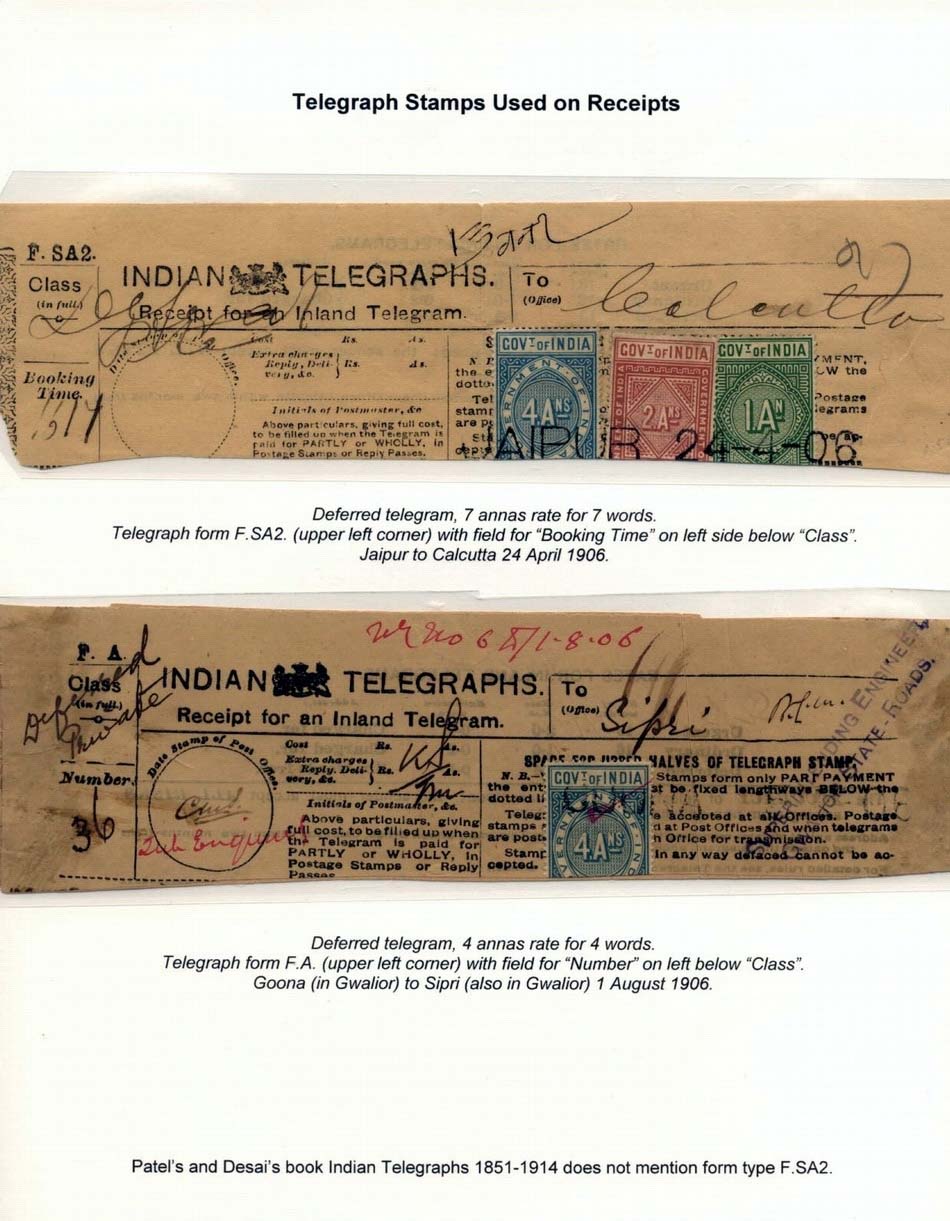 Telegraph Stamps Used on Receipts
F. SA2.
Class
(in full.)
INDIAN TELEGRAPHS.
Receipt for an Inland Telegram.
To
(Office)
Calcutta
Booking
Time.
Cost Rs. As.
Extra charges
Reply, Deli- Rs. As.
very, &c.
Initials of Postmaster, &c
Above particulars, giving full cost,
to be filled up when the Telegram is
paid for PARTLY or WHOLLY, in
Postage Stamps or Reply Passes.
GOVT OF INDIA
4 ANS
GOVT OF INDIA
2 ANS
GOVT OF INDIA
1 AN
JAIPUR 24-4-06
Deferred telegram, 7 annas rate for 7 words.
Telegraph form F.SA2. (upper left corner) with field for “Booking Time” on left side below “Class”.
Jaipur to Calcutta 24 April 1906.
F. A.
Class
(in full.)
Deferred
Private
Number.
36
INDIAN TELEGRAPHS.
Receipt for an Inland Telegram.
To
(Office)
Sipri
Date Stamp of Post Office.
Cost Rs. As.
Extra charges
Reply, Deli- Rs. As.
very, &c.
Initials of Postmaster, &c.
Above particulars, giving
full cost, to be filled up when
the Telegram is paid for
PARTLY or WHOLLY, in
Postage Stamps or Reply
Passes
1-8-06
HALVES OF TELEGRAPH STAMP
N. B.- Stamps form only PART PAYMENT
the ent st be fixed lengthways BELOW the
dotted li
Telegr e accepted at all Offices. Postage
stamps d at Post Offices and when telegrams
are post n Office for transmission.
Stamp in any way defaced cannot be ac-
cepted.
GOVT OF INDIA
4 ANS
ENGINEER
STATE-ROADS.
Deferred telegram, 4 annas rate for 4 words.
Telegraph form F.A. (upper left corner) with field for “Number” on left below “Class”.
Goona (in Gwalior) to Sipri (also in Gwalior) 1 August 1906.
Patel’s and Desai’s book Indian Telegraphs 1851-1914 does not mention form type F.SA2.